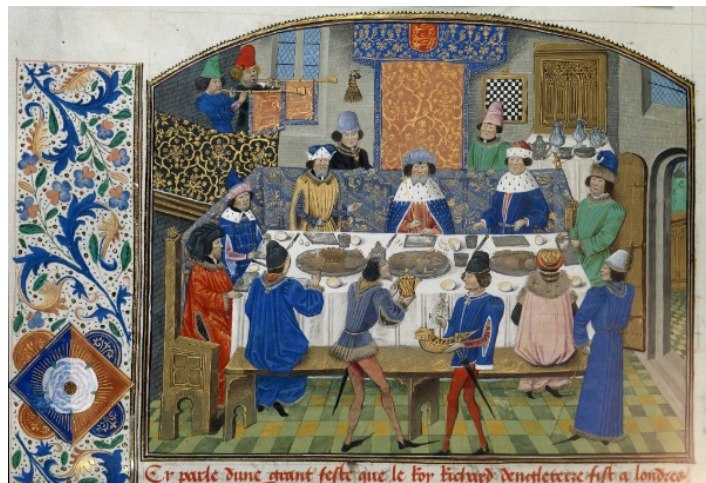 Cy parle dune grant feste que le Roy Richard dengleterre fist a londres